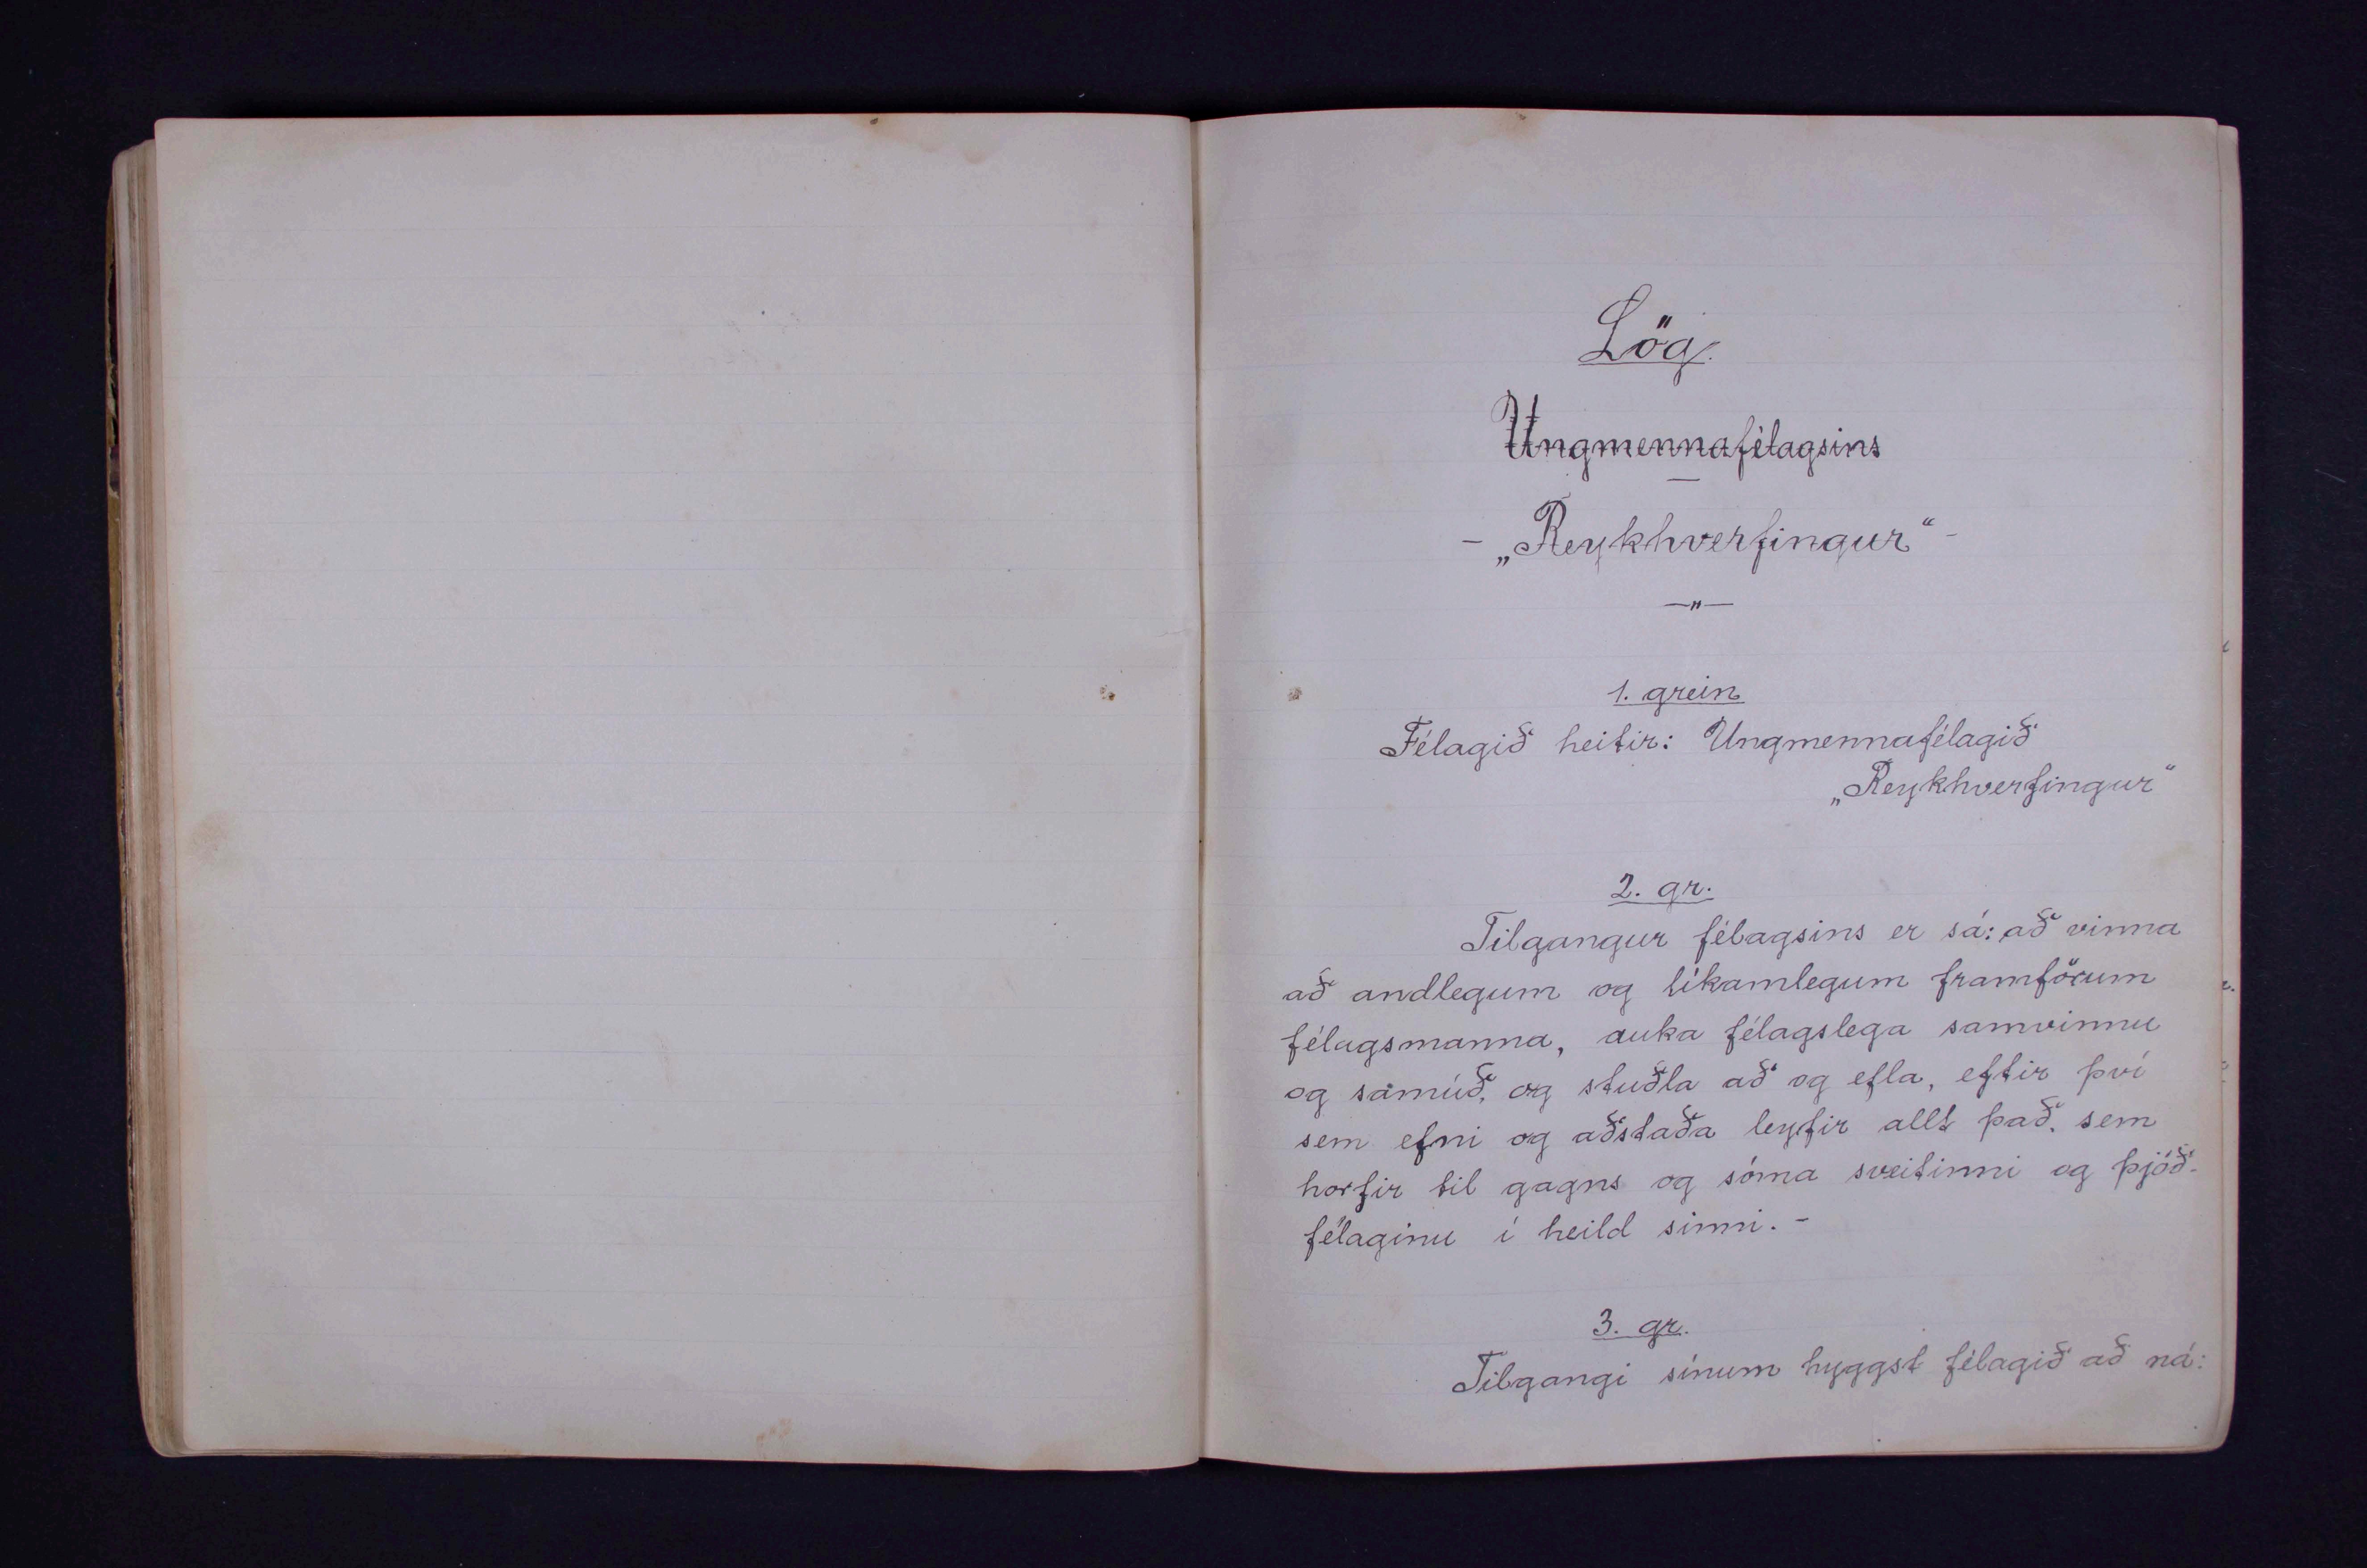 Lög.
Ungmennafélagsins
- „Reykhverfingur“ -
—"—
1. grein
Félagið heitir: Ungmennafélagið
„Reykhverfingur“
2. gr.
Tilgangur félagsins er sá: að vinna
að andlegum og líkamlegum framförum
félagsmanna, auka félagslega samvinnu
og samúð, og stuðla að og efla, eftir því
sem efni og aðstaða leyfir allt það, sem
horfir til gagns og sóma sveitinni og þjóð-
félaginu í heild sinni. -
3. gr.
Tilgangi sínum hyggst félagið að ná: